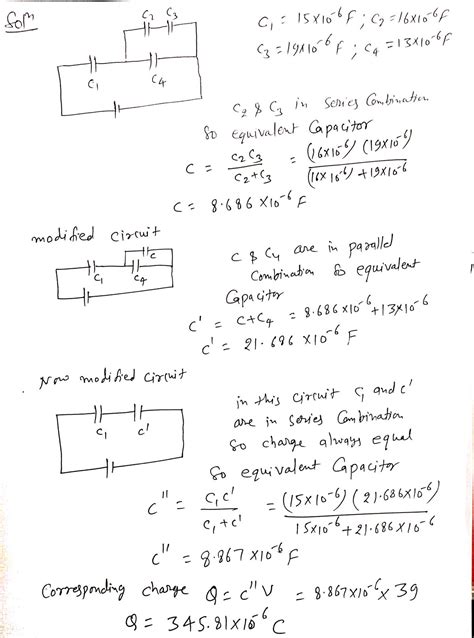 Soln
C2 C3
C1 C4
C1 = 15×10^-6 F ; C2 = 16×10^-6 F
C3 = 19×10^-6 F ; C4 = 13×10^-6 F
C2 & C3 in series Combination
So equivalent Capacitor
C = C2C3 / C2+C3 = (16×10^-6) (19×10^-6) / (16×10^-6) + 19×10^-6
C = 8.686 ×10^-6 F
modified circuit
C
C1 C4
C & C4 are in parallel
Combination So equivalent
Capacitor
C' = C+C4 = 8.686×10^-6 + 13×10^-6
C' = 21.686 ×10^-6 F
Now modified circuit
C1 C'
in this circuit C1 and C'
are in series Combination
So charge always equal
So equivalent Capacitor
C'' = C1C' / C1+C' = (15×10^-6) (21.686×10^-6) / 15×10^-6 + 21.686×10^-6
C'' = 8.867 ×10^-6 F
Corresponding charge Q = C''V = 8.867×10^-6 × 39
Q = 345.81×10^-6 C